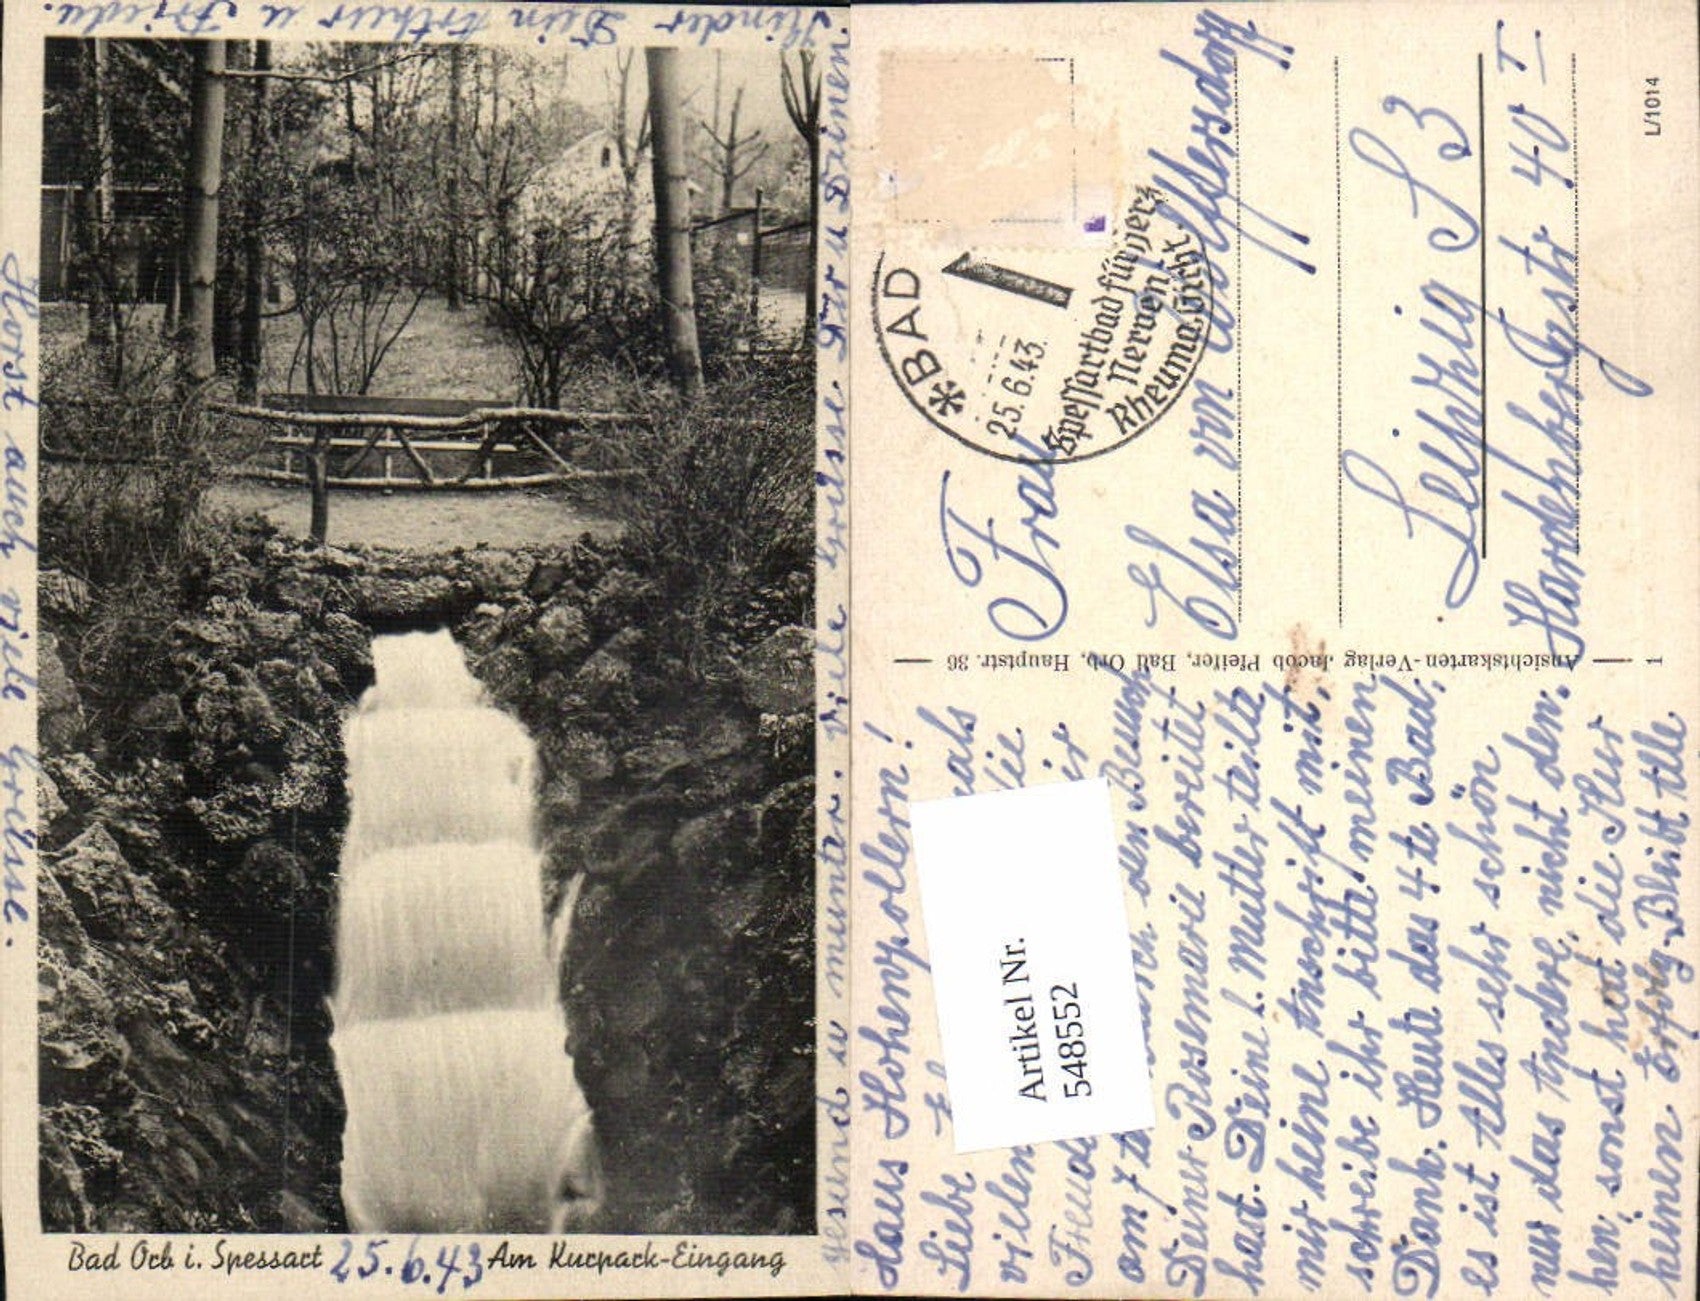 Bad Orb i. Spessart 25.6.43 Am Kurpark-Eingang
Haus Hohenzollern!
Liebe
vielen
Freude
am 7 ten den Besuch
Deiner Rosemarie bereitet
hast. Deine l. Mutter teilte
mir keine Anschrift mit,
schreibe ihr bitte meinen
Dank. Heute das 4 te Bad,
es ist Alles sehr schön
nur das Andere nicht den-
ken, sonst hat die Kur
keinen Erfolg. Bleibt Alle
gesund u munter. Viele Grüsse Dir u Deinen
Kinder Dein Arthur u Frieda.
Horst auch viele Grüsse.
Frau
Elsa von Wolffersdorff
Leipzig S 3
Hardenbergstr 40 I
*BAD
25.6.43.
Spessartbad für Herz
Nerven,
Rheuma, Gicht.
Ansichtskarten-Verlag Jacob Pfeifer, Bad Orb, Hauptstr. 36
L/1014
Artikel Nr.
548552